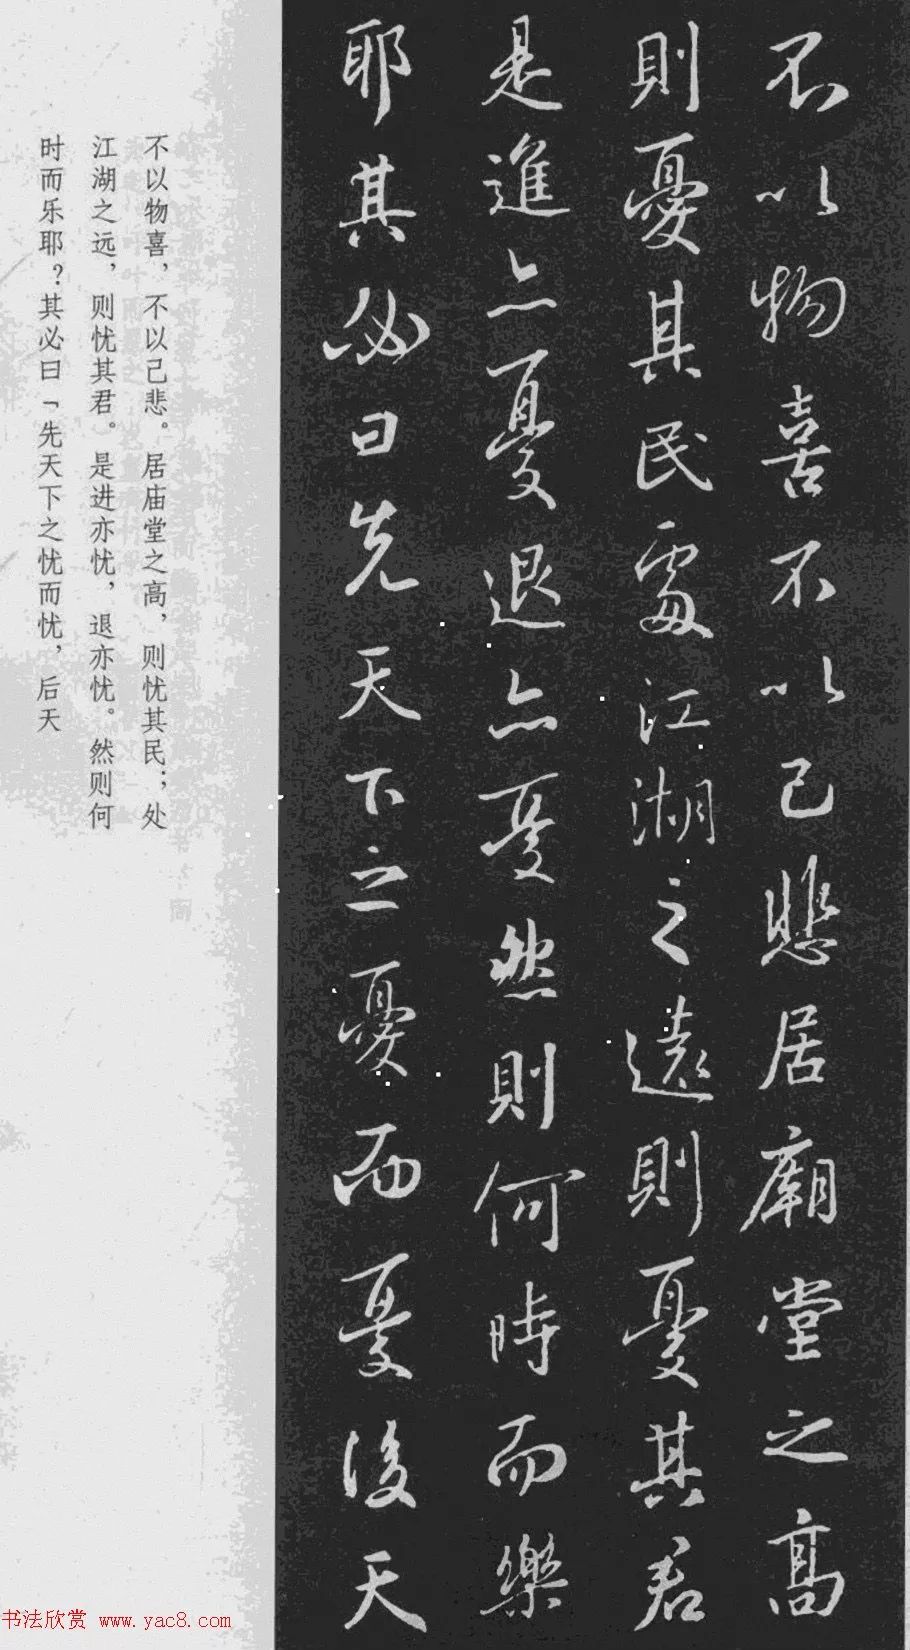 不以物喜不以己悲居廟堂之高
則憂其民處江湖之遠則憂其君
是進亦憂退亦憂然則何時而樂
耶其必曰先天下之憂而憂後天
不以物喜，不以己悲。居庙堂之高，则忧其民；处
江湖之远，则忧其君。是进亦忧，退亦忧。然则何
时而乐耶？其必曰「先天下之忧而忧，后天
书法欣赏 www.yac8.com